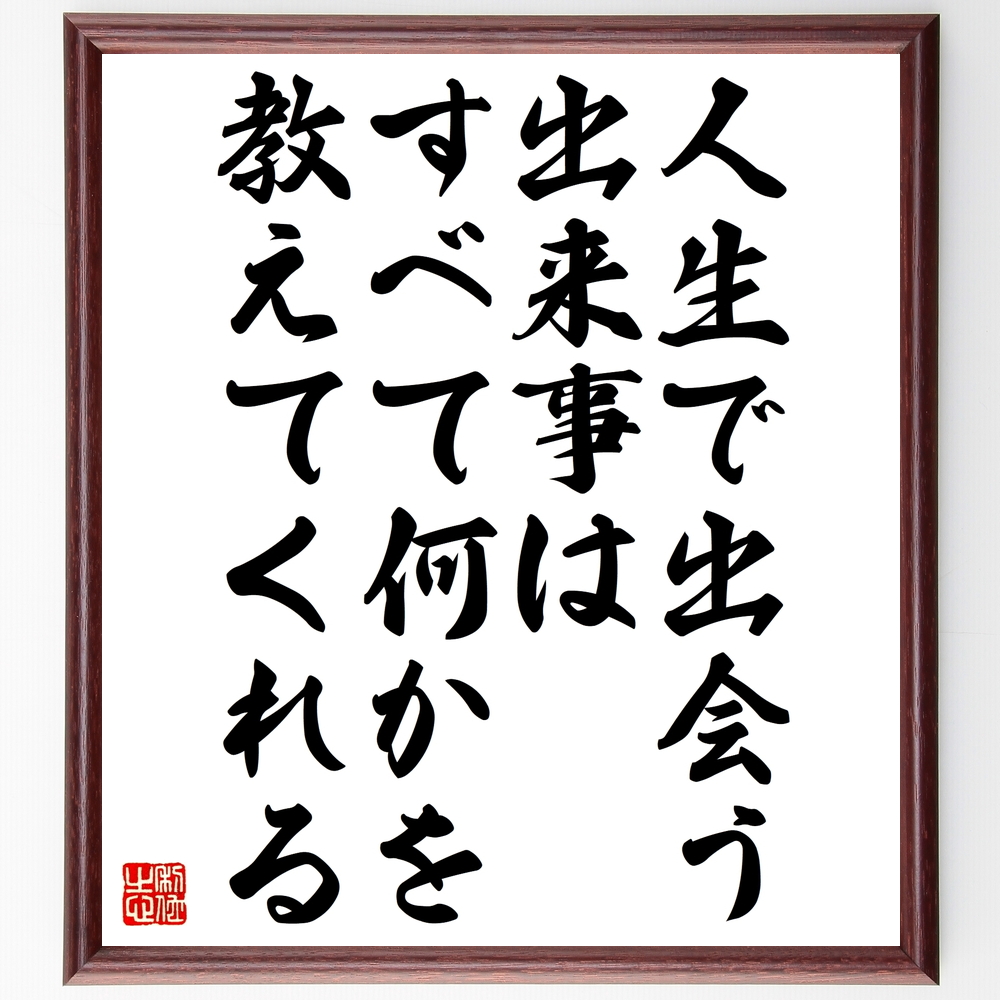 人生で出会う
出来事は
すべて何かを
教えてくれる